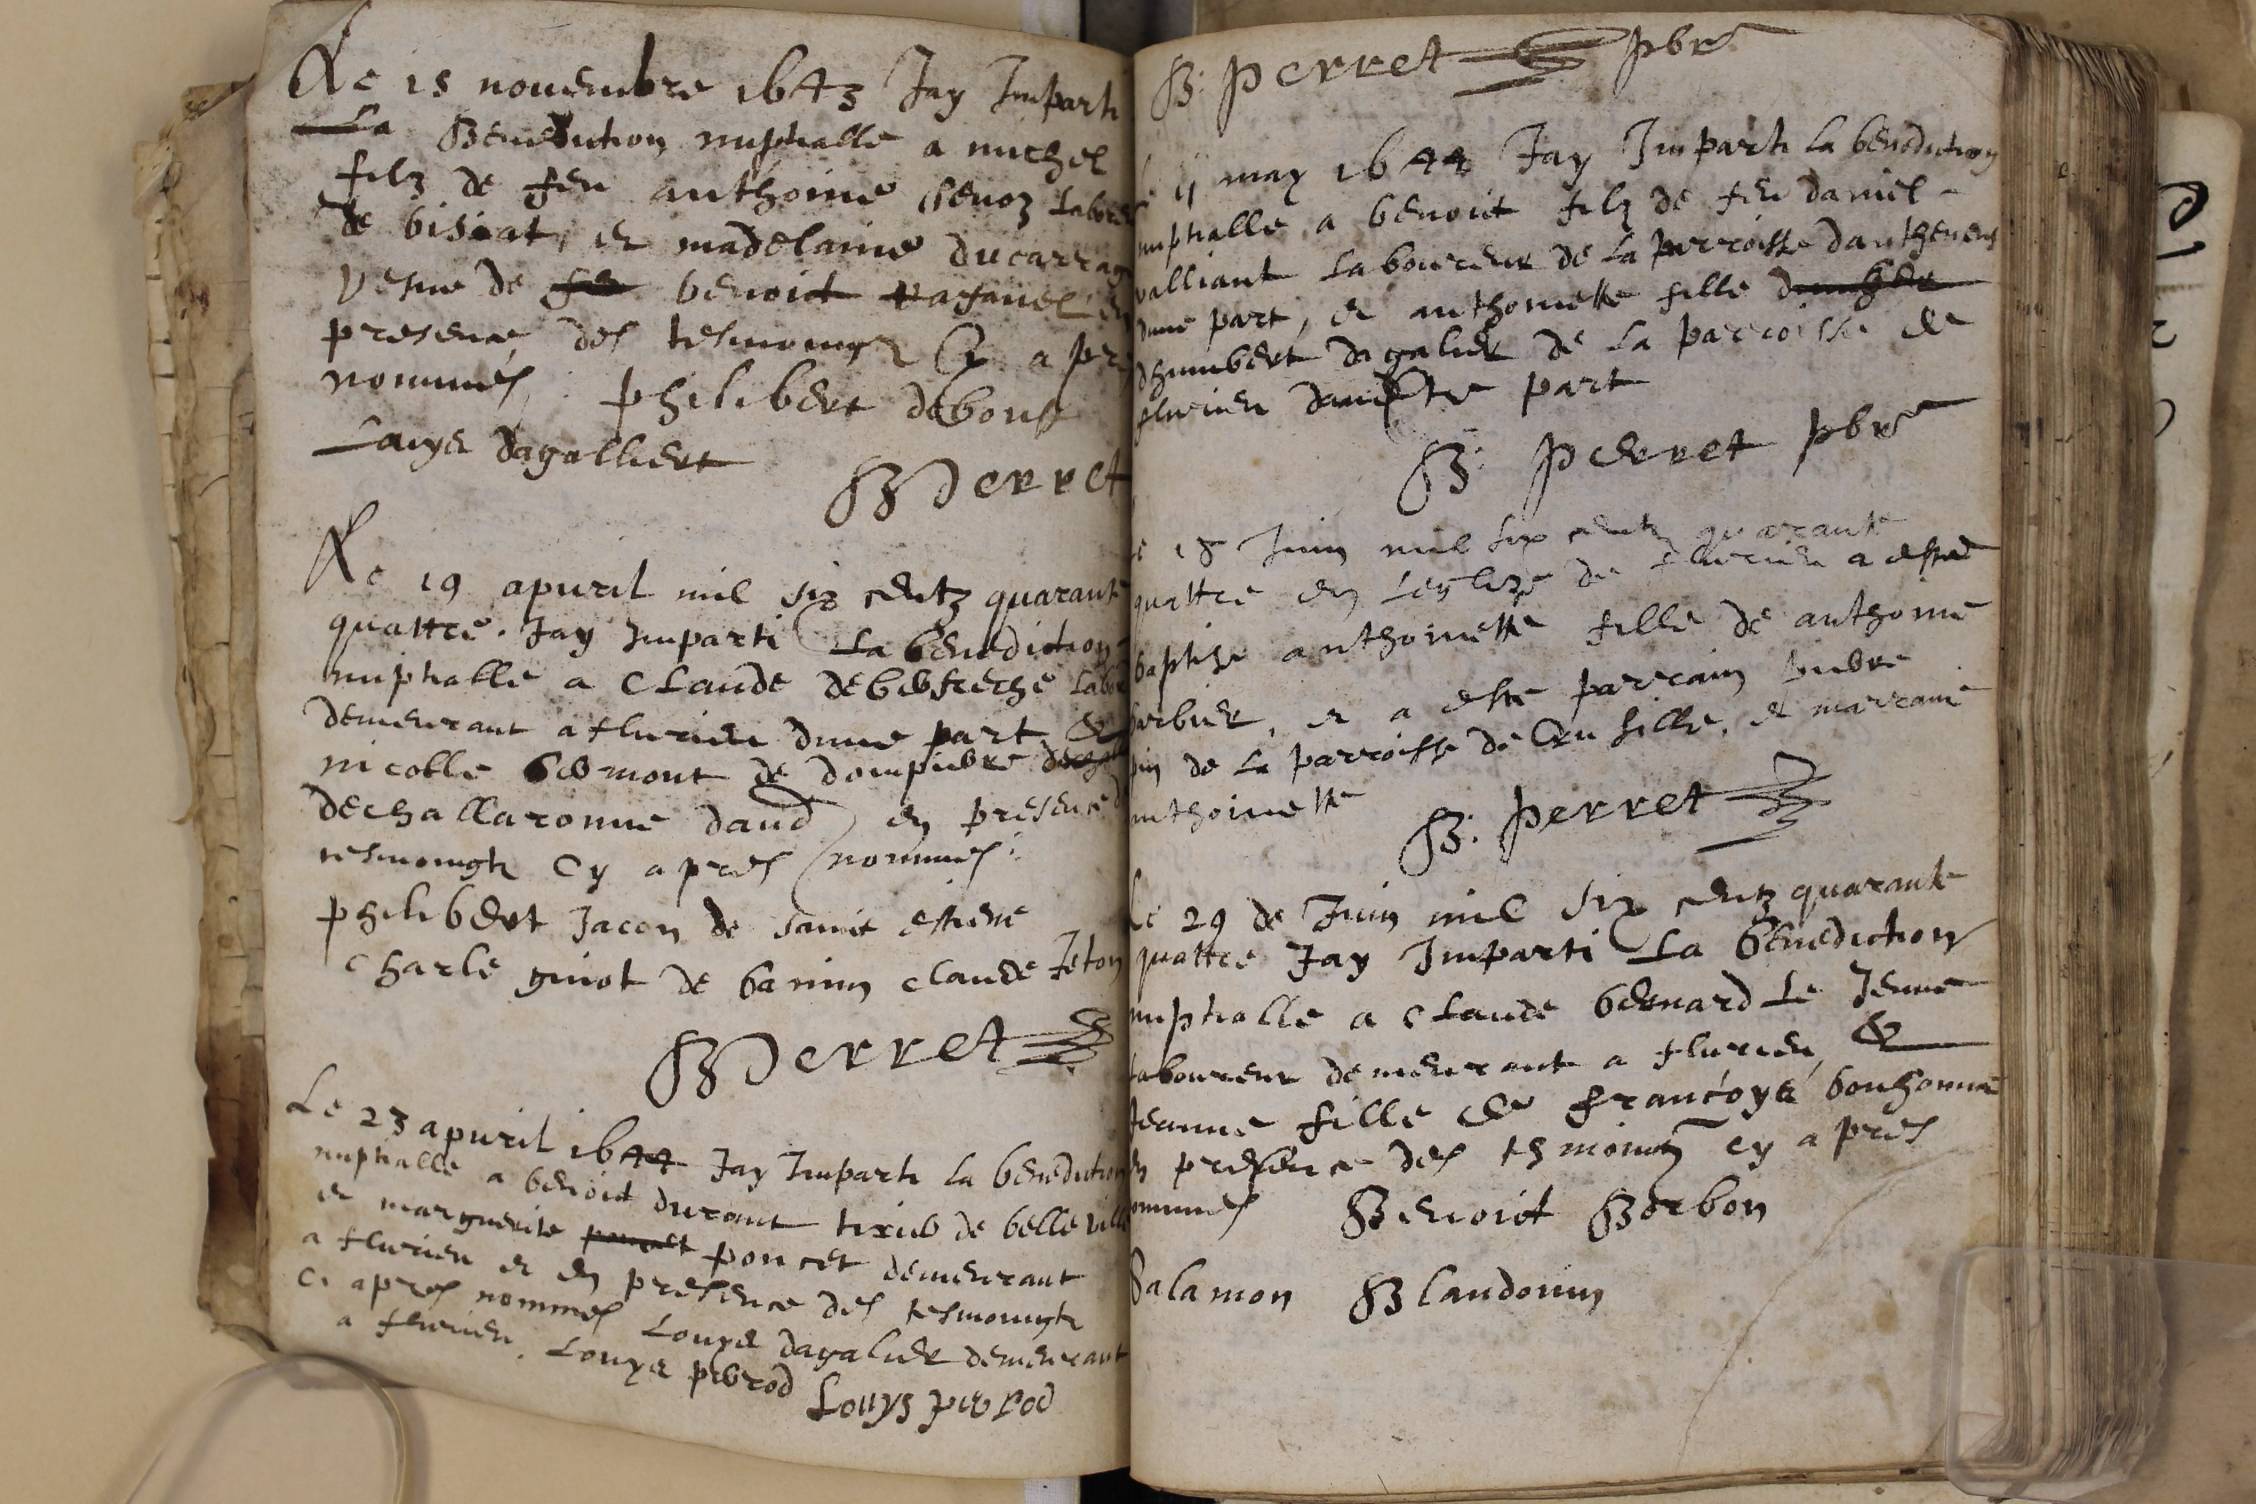 Le 15 nouembre 1643 Jay Imparti
La Benediction nuptialle a michel
filz de feu anthoine
de bisiat, et madelaine ducarrag
vesue de feu benoict
presence des tesmoings Cy a pr
nommes philibert debour
Louys dagallier
B Perret
Le 19 apuril mil six centz quarante
quattre. Jay Imparti La benediction
nuptialle a Claude debefreche Labo
demeurant a flurieu dune part &
nicolle bermont de dompierre
dechallaronne daud en presence d
tesmoingtz Cy apres nommes:
philibert Jacon de saint estiene
Charle guiot de banin Claude Jeton
B Perret
Le 23 apuril 1644 Jay Imparti la benediction
nuptialle a benoict durant tixier de belleville
et marguerite poncet poncet demeurant
a flurieu et en presence des tesmoingtz
Ci apres nommes Louys dagalier demeurant
a flurieu. Louys pierrod
Louys pierrod
B. Perret pbre
ii may 1644 Jay Imparti la benediction
nuptialle a benoit filz de feu daniel
valliant Laboureur de la parroisse danthenens
dune part, et anthoinette fille
dhumbert dagalier de la parroisse de
flurieu dautre part
B. Perret pbre
e 18 Juin mil six centz quarante
quattre en Leglize de flurieu a esté
baptise anthoinette fille de anthoine
barbier, et a este parrain
pin de la parroisse de Cru sille, et marraine
anthoinette
B. Perret
Le 29 de Juin mil six centz quarante
quattre Jay Imparti La benediction
nuptialle a Claude bernard le Jeune
Laboureur demeurant a flurieu, &
Jeanne fille de francoys bonhomme
en presence des tesmoingtz cy apres
ommes Benoict Borbon
Salamon Blandonin